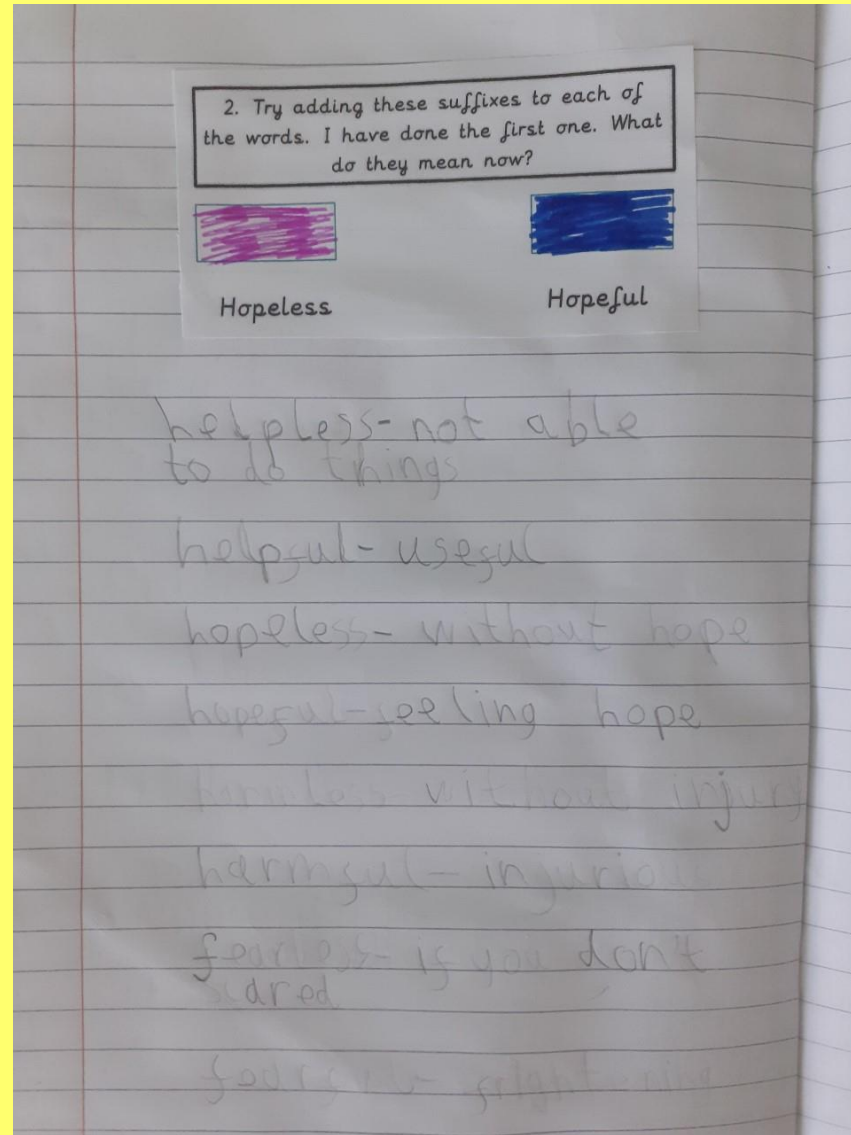 2. Try adding these suffixes to each of
the words. I have done the first one. What
do they mean now?
Hopeless Hopeful
helpless- not able
to do things
helpful- useful
hopeless- without hope
hopeful-feeling hope
harmless without injury
harmful- in
fearless- if you don't
scared
fearful- frightening